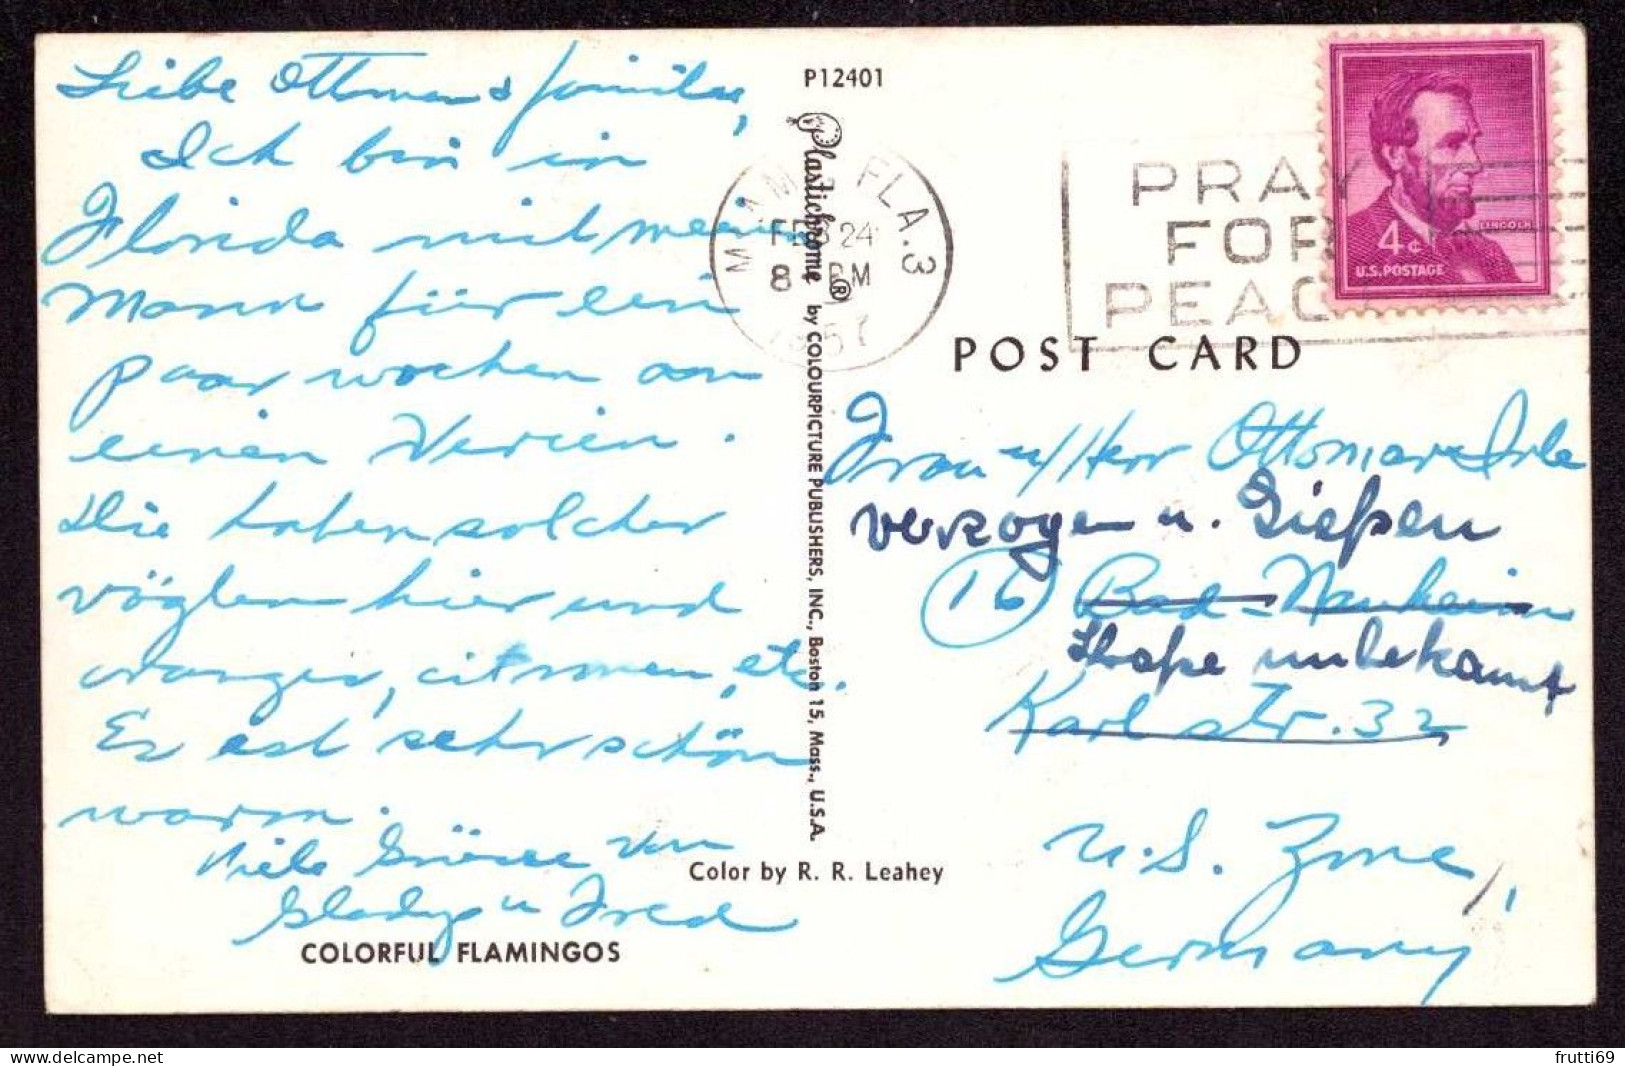 Liebe Ottomar & familie,
Ich bin in
Florida mit mein
Mann für ein
paar wochen an
einen Verien.
Die haben solcher
vöglen hier und
oranges, citronen, etc.
Es est sehr schön
warm.
Viele Grüsse von
Gladys u Fred
COLORFUL FLAMINGOS
P12401
Plastichrome ® by COLOURPICTURE PUBLISHERS, INC., Boston 15, Mass., U.S.A.
Color by R. R. Leahey
MIAMI FLA. 3
FEB 24
8 PM
1957
PRAY
FOR
PEACE
4¢
LINCOLN
U.S. POSTAGE
POST CARD
Frau u/Herr Ottomar
verzogen n. Gießen
16 Bad-Nauheim
Straße unbekannt
Karlstr. 32
U.S. Zone,
Germany
delcampe.net
frutti69